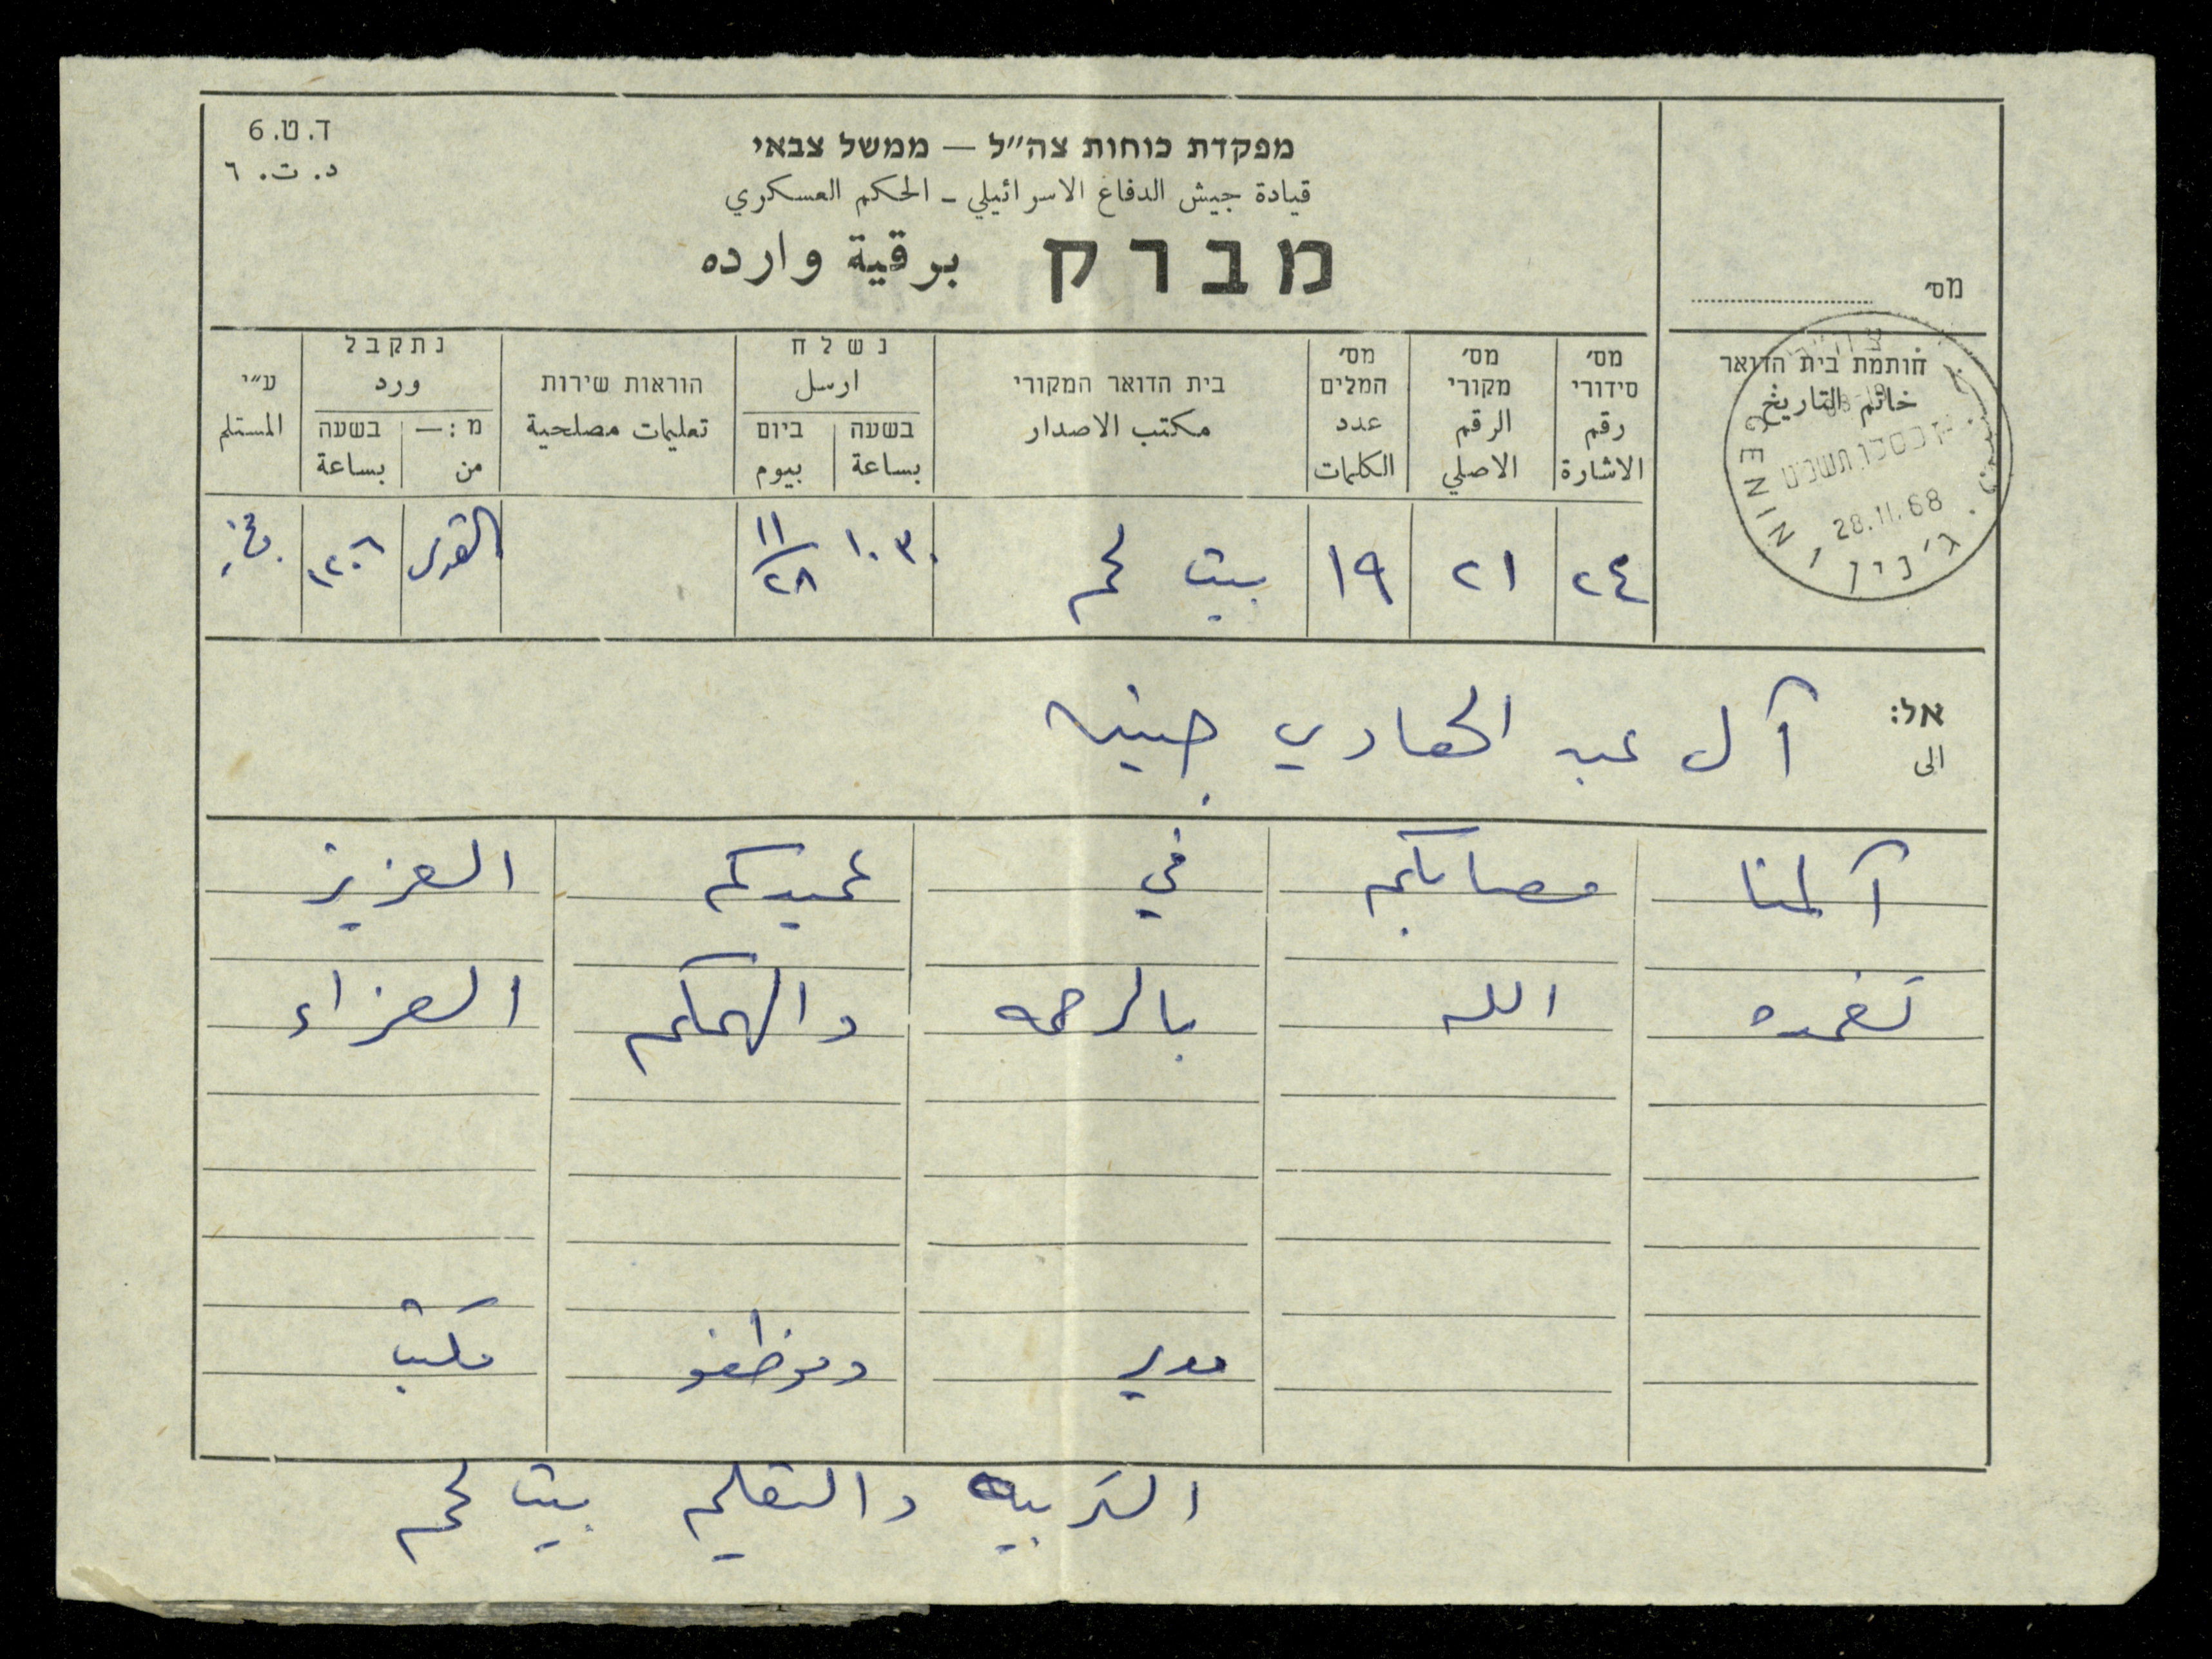 ד.ט.6
د.ت.٦
מפקדת כוחות צה״ל — ממשל צבאי
قيادة جيش الدفاع الاسرائيلي - الحكم العسكري
מברק برقية وارده
מס׳
חותמת בית הדואר
خاتم التاريخ
JENIN
28.11.68
ג׳נין
מס׳ סידורי رقم الاشارة
מס׳ מקורי الرقم الاصلي
מס׳ המלים عدد الكلمات
בית הדואר המקורי مكتب الاصدار
נשלח ارسل
בשעה بساعة
ביום بيوم
הוראות שירות تعليمات مصلحية
נתקבל ورد
מ:— من
בשעה بساعة
ע״י المستلم
٢٤ ٢١ ١٩ بيت لحم ١٠٣٠ ١١/٢٨ القدس
אל: آل عبد الهادي جنين
الى
آلمنا مصابكم في عميدكم العزيز
تغمده الله بالرحمه والهمكم العزاء
مدير وموظفو مكتب
التربيه والتعليم بيت لحم